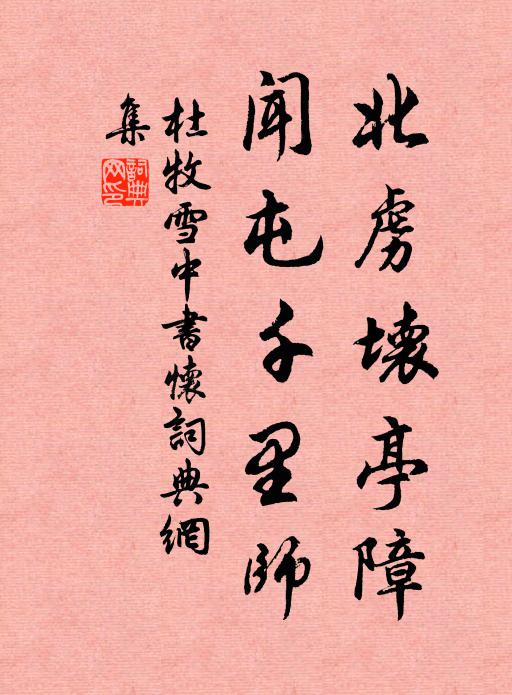 北虜壞亭障
聞屯千里師
杜牧雪中書懷詞典網
集
詞典
网印